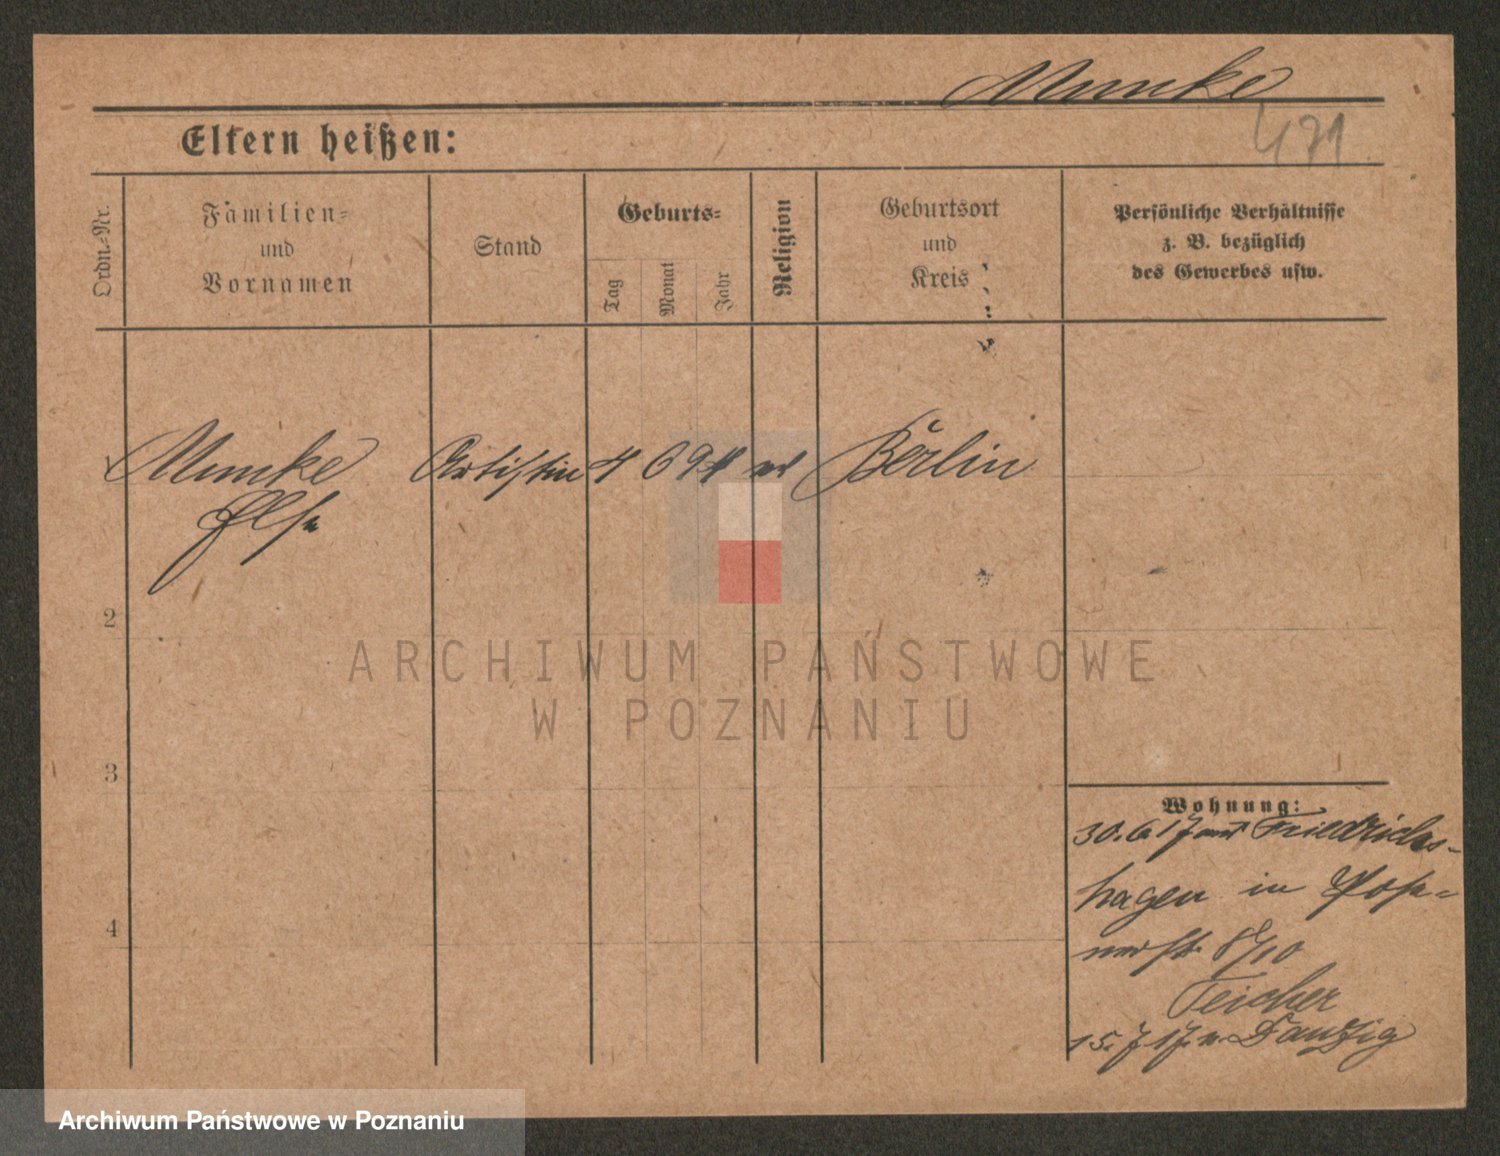 Muncke
471
Eltern heißen:
Ordn.-Nr.
Familien-
und
Vornamen
Stand
Geburts-
Tag
Monat
Jahr
Religion
Geburtsort
und
Kreis
Persönliche Verhältnisse
z. B. bezüglich
des Gewerbes usw.
Muncke Artistin 4 6 94 ev Berlin
Else
2
3
4
Wohnung:
30. 6 17 aus Friedrichs-
hagen in Pose-
nerstr. 8/10
Teicher
15. 7 17. n. Danzig
ARCHIWUM PAŃSTWOWE
W POZNANIU
Archiwum Państwowe w Poznaniu